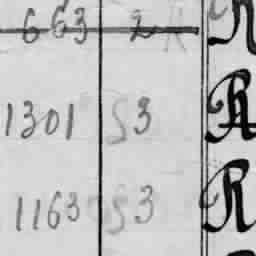 663 2 R
1301 S3 R
1163 S3 R